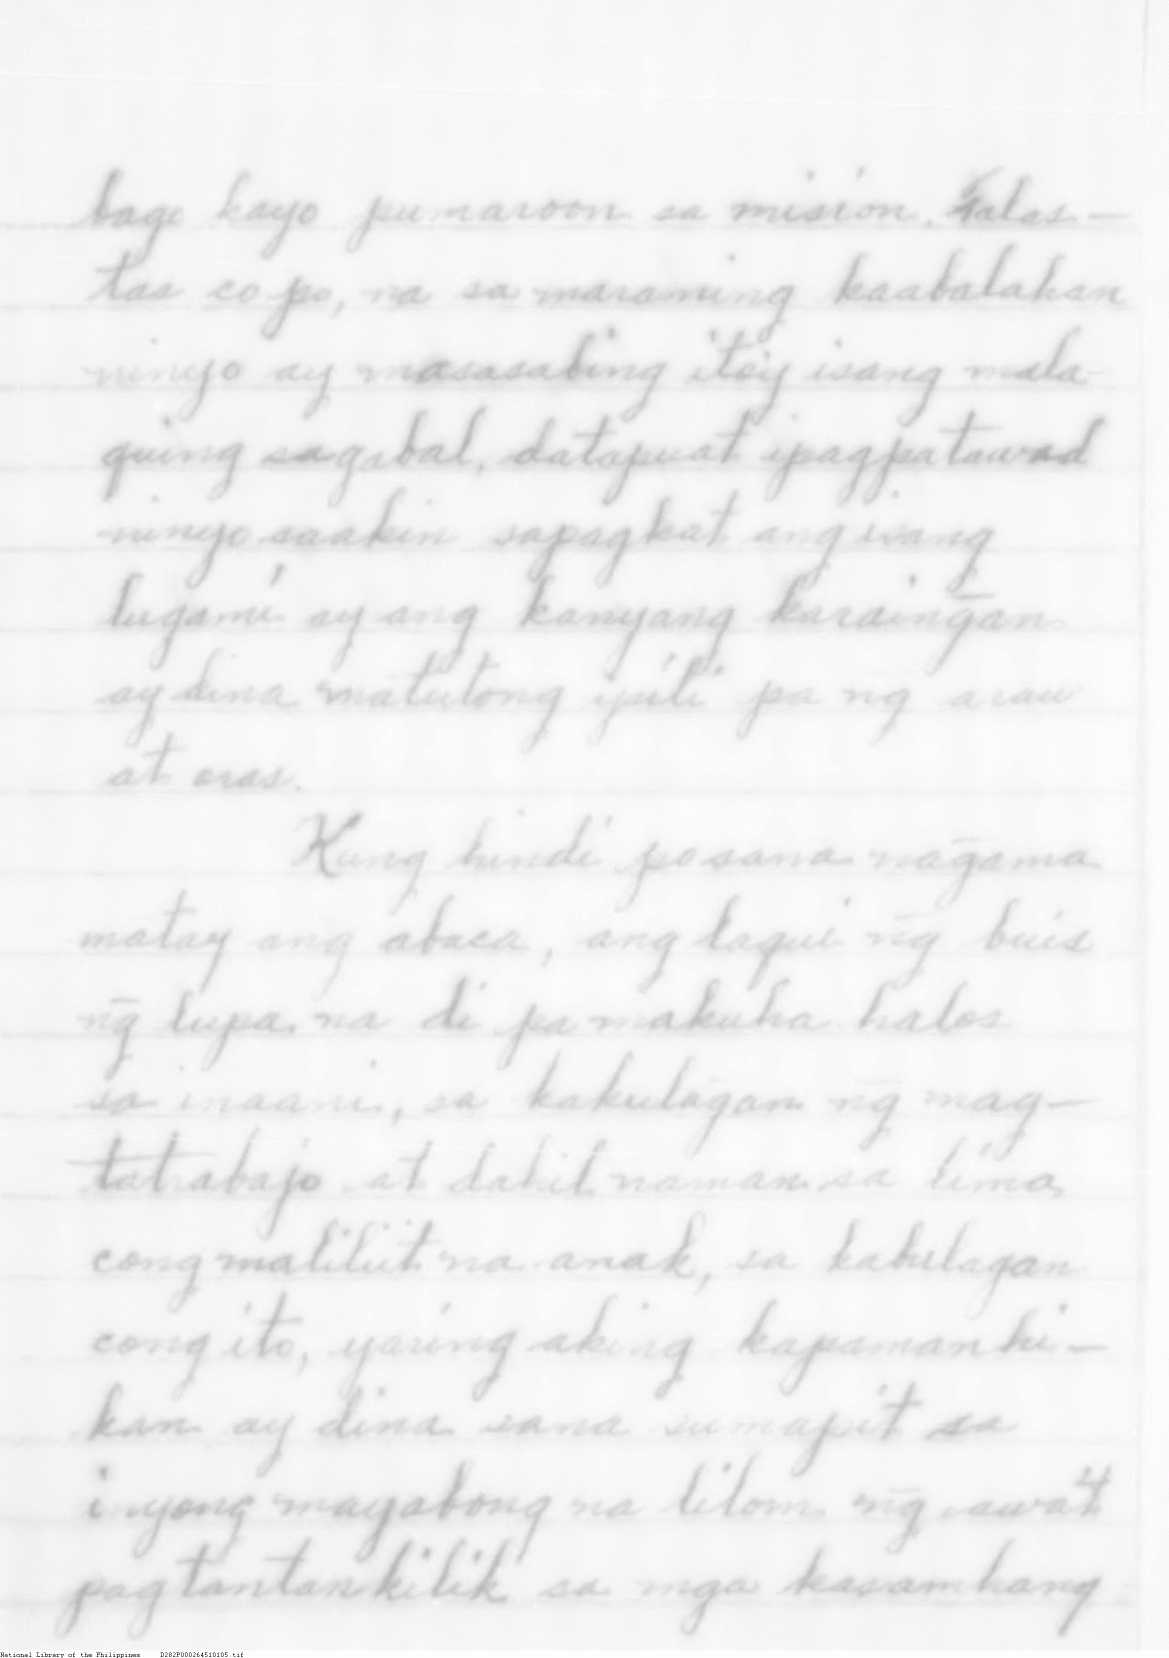 bago kayo pumaroon sa mision. Talas-
tas co po, na sa maraming kaabalahan
ninyo ay masasabing itoy isang mala-
quing sagabal, datapuat ipagpatawad
ninyo saakin sapagkat ang isang
lugami ay ang kanyang karaingan
ay dina matutong ipili pa ng arau
at oras.
Kung hindi po sana nagama
matay ang abaca, ang laqui n̄g buis
n̄g lupa na di pa makuha halos
sa inaani, sa kakulagan n̄g mag-
tatrabajo at dahil naman sa lima
cong maliliit na anak, sa kakulagan
cong ito, yaring aking kapamanhi-
kan ay dina sana sumapit sa
inyong mayabong na lilom n̄g awat
pagtantankilik sa mga kasamhang
National Library of the Philippines D282P000264510105.tif